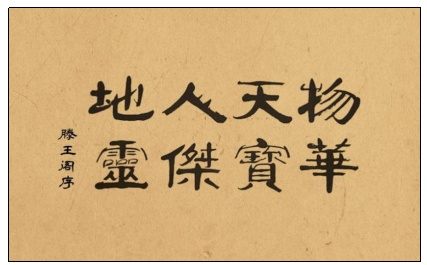 物華
天寶
人傑
地靈
滕王阁序